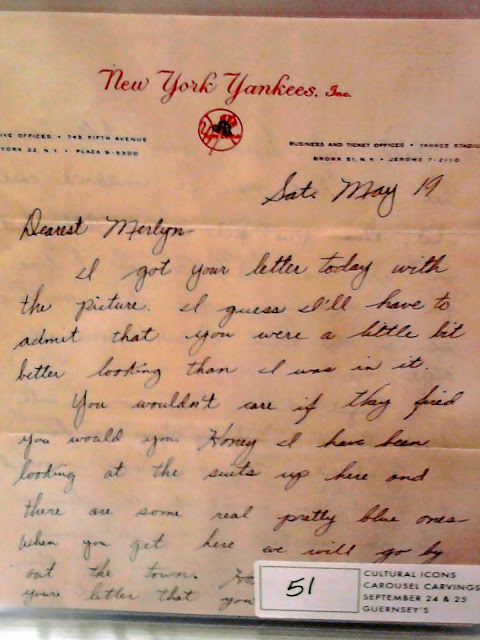 New York Yankees, Inc.
IVE OFFICES • 745 FIFTH AVENUE
YORK 22, N.Y. • PLAZA 9-5300
BUSINESS AND TICKET OFFICES • YANKEE STADIU
BRONX 51, N.Y. • JEROME 7-2100
Sat. May 19
Dearest Merlyn
I got your letter today with
the picture. I guess I'll have to
admit that you were a little bit
better looking than I was in it.
You wouldn't care if they fired
you would you. Honey I have been
looking at the suits up here and
there are some real pretty blue ones
When you get here we will go by
out the town.
youre letter that you
51
CULTURAL ICONS
CAROUSEL CARVINGS
SEPTEMBER 24 & 25
GUERNSEY'S